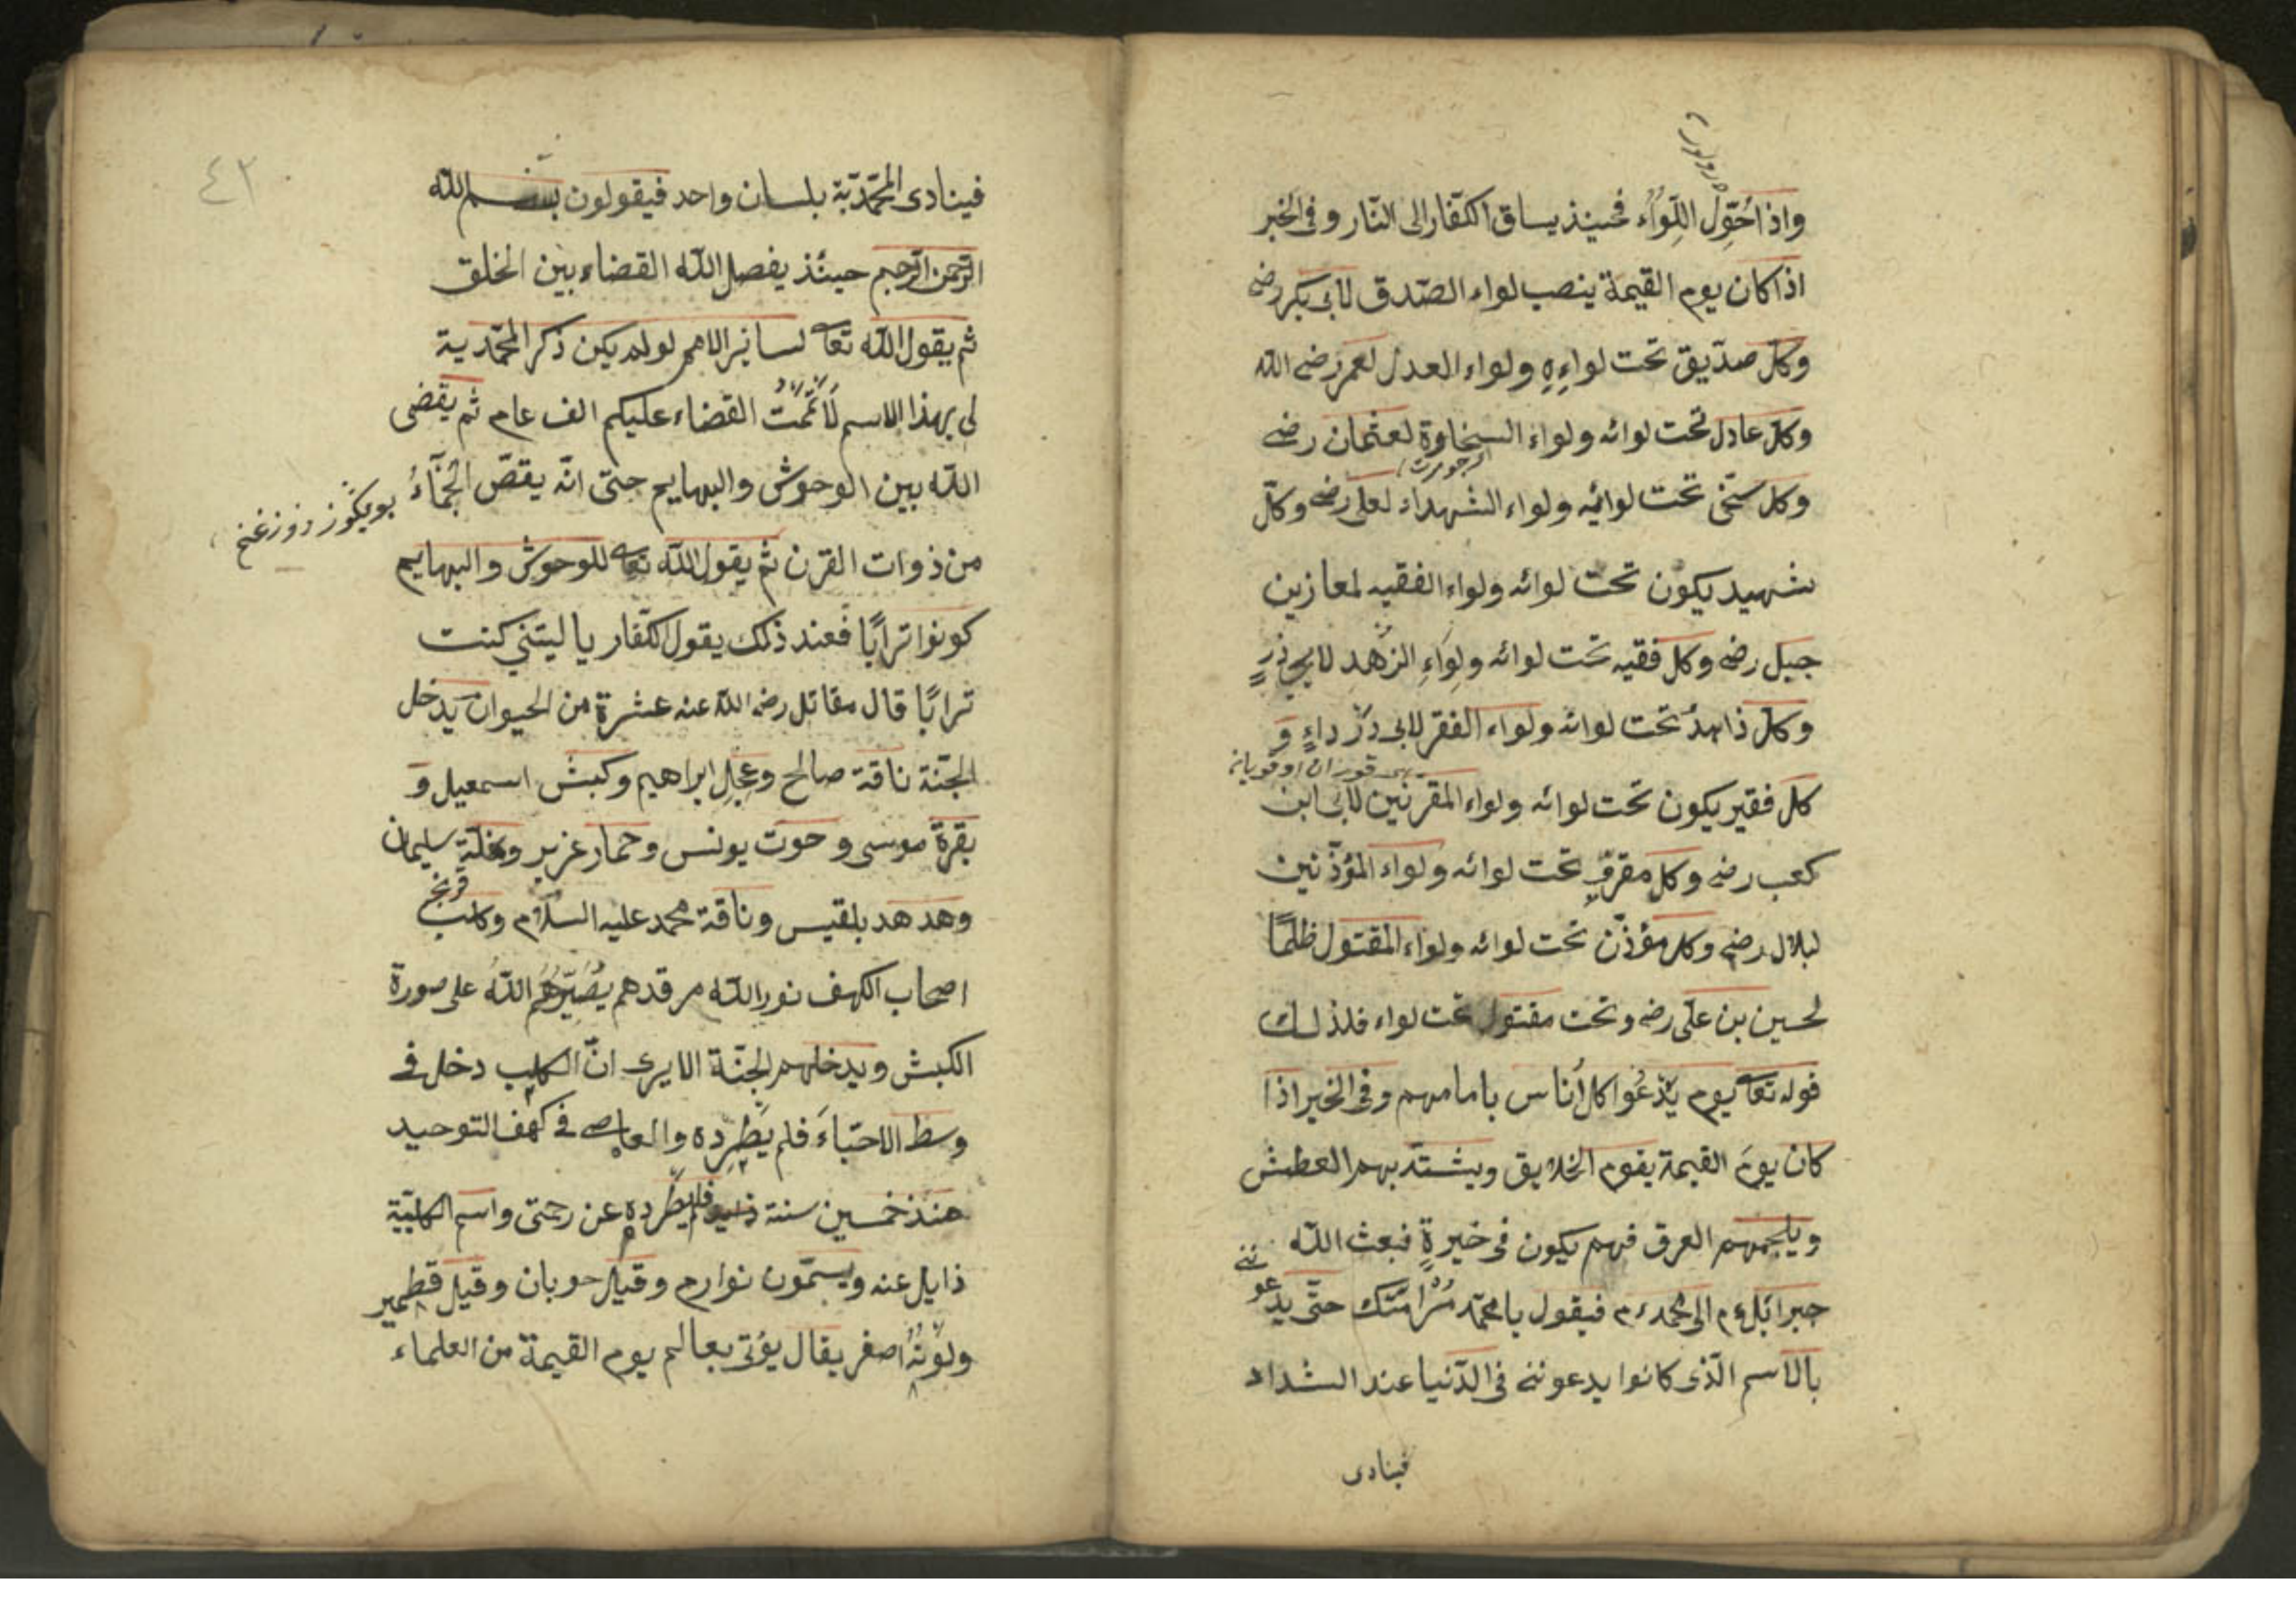 واذا حُوِّلُ اللِّوَاُء فحينذ يساق الكفّار الى النّار و فى الخبر
اذا كان يوم القيمة ينصب لواء الصّدق لابى بكر رضى
وكلّ صدّيق تحت لواءِهِ ولواء العدل لعمر رضى الله
وكلّ عادل تحت لوائه ولواء السخاوة لعثمان رضى
وكل سخّى تحت لوائه ولواء الشهداء لعلى رضى وكلّ
شهيد يكون تحت لوائه ولواء الفقيه لمعاز بن
جبل رضى وكل فقيه تحت لوائه ولِوَاءِ الزهدِ لابى ذرٍ
وكلّ ذاهدُ تحت لوائه ولواء الفقر لابى درداءٍ وَ
كل فقير يكون تحت لوائه ولواء المقرئين لابى ابن
كعب رضى وكل مقرئٍ تحت لوائه ولواء المؤذّنين
لبلال رضى وكل مؤذّن تحت لوائه ولواء المقتول ظلمًا
لحسين بن على رضى وتحت مقتول تحت لواء فلذلك
قوله تعا يوم يدْعُوا كل اُناس بامامهم وفى الخبر اذا
كان يومَ القيمة يقوم الخلايق ويشتدّ بهم العطش
ويلجمهم العرق فهم يكون فى خيرةٍ فبعث الله
جبرائل ءم الى محمد ءم فيقول يا محمّد مُرْ اُمّتك حتّى يدعو
ننى
بالاسم الّذى كانوا يدعوننى فى الدّنيا عند الشداد
فينادى
٤٢
فينادى المحمّديّة بلسان واحد فيقولون بسم الله
الرّحمن الرّحيم حينئذ يفصل الله القضاء بين الخلق
ثم يقول الله تعا لسائر الامم لو لم يكن ذكر المحمّدية
لى بهذا الاسم لَاَتْمَمْتُ القضاء عليكم الف عام ثم يقضى
الله بين الوحوش والبهايم حتى انّه يقصّ الجَمَّآءُ
من ذوات القرن ثم يقول الله تعا للوحوش والبهايم
كونوا ترابًا فعند ذلك يقول الكفّار يا ليتنى كنت
ترابًا قال مقاتل رضى الله عنه عشرة من الحيوان يدخل
الجنّة ناقة صالح وعجل ابراهيم وكبش اسمعيل وَ
بقرة موسى و حوت يونس وحمار عزير ونملة سليمان
وهدهد بلقيس وناقة محمد عليه السلام وكلب
اصحاب الكهف نور الله مرقدهم يُصَيِّرُهُمُ اللّٰه على صورة
الكبش ويدخلهم الجنّة الا يرى انّ الكلب دخل فى
وسط الاحبّاءَ فلم يَطْرِدْه والعاصى فى كهف التوحيد
منذ خمسين سنة فلم يطرده عن رحمتى واسم الكلبيّة
ذايل عنه ويسمّون نوارم وقيل حوبان وقيل قطمير
ولَوْنُهُ اصفر يقال يؤتى بعالم يوم القيمة من العلماء